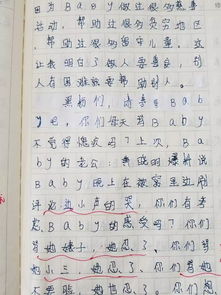 因为Baby做过很多慈善
活动，帮助过很多贫穷地区，
帮助过很多留守儿童，这
让我明白了做人要善良，别
人有困难就要帮助别人。
黑粉们，请善待Baby
吧，你们每天骂Baby
不觉得愧疚吗？上次，Ba
by的老公：黄晓明爆料说
Baby晚上在被窝里边刷
评论边小声的哭，你们有考
虑Baby的感受吗？你们
骂她婊子，她忍了，你们骂
她小三，她忍了，你们骂她